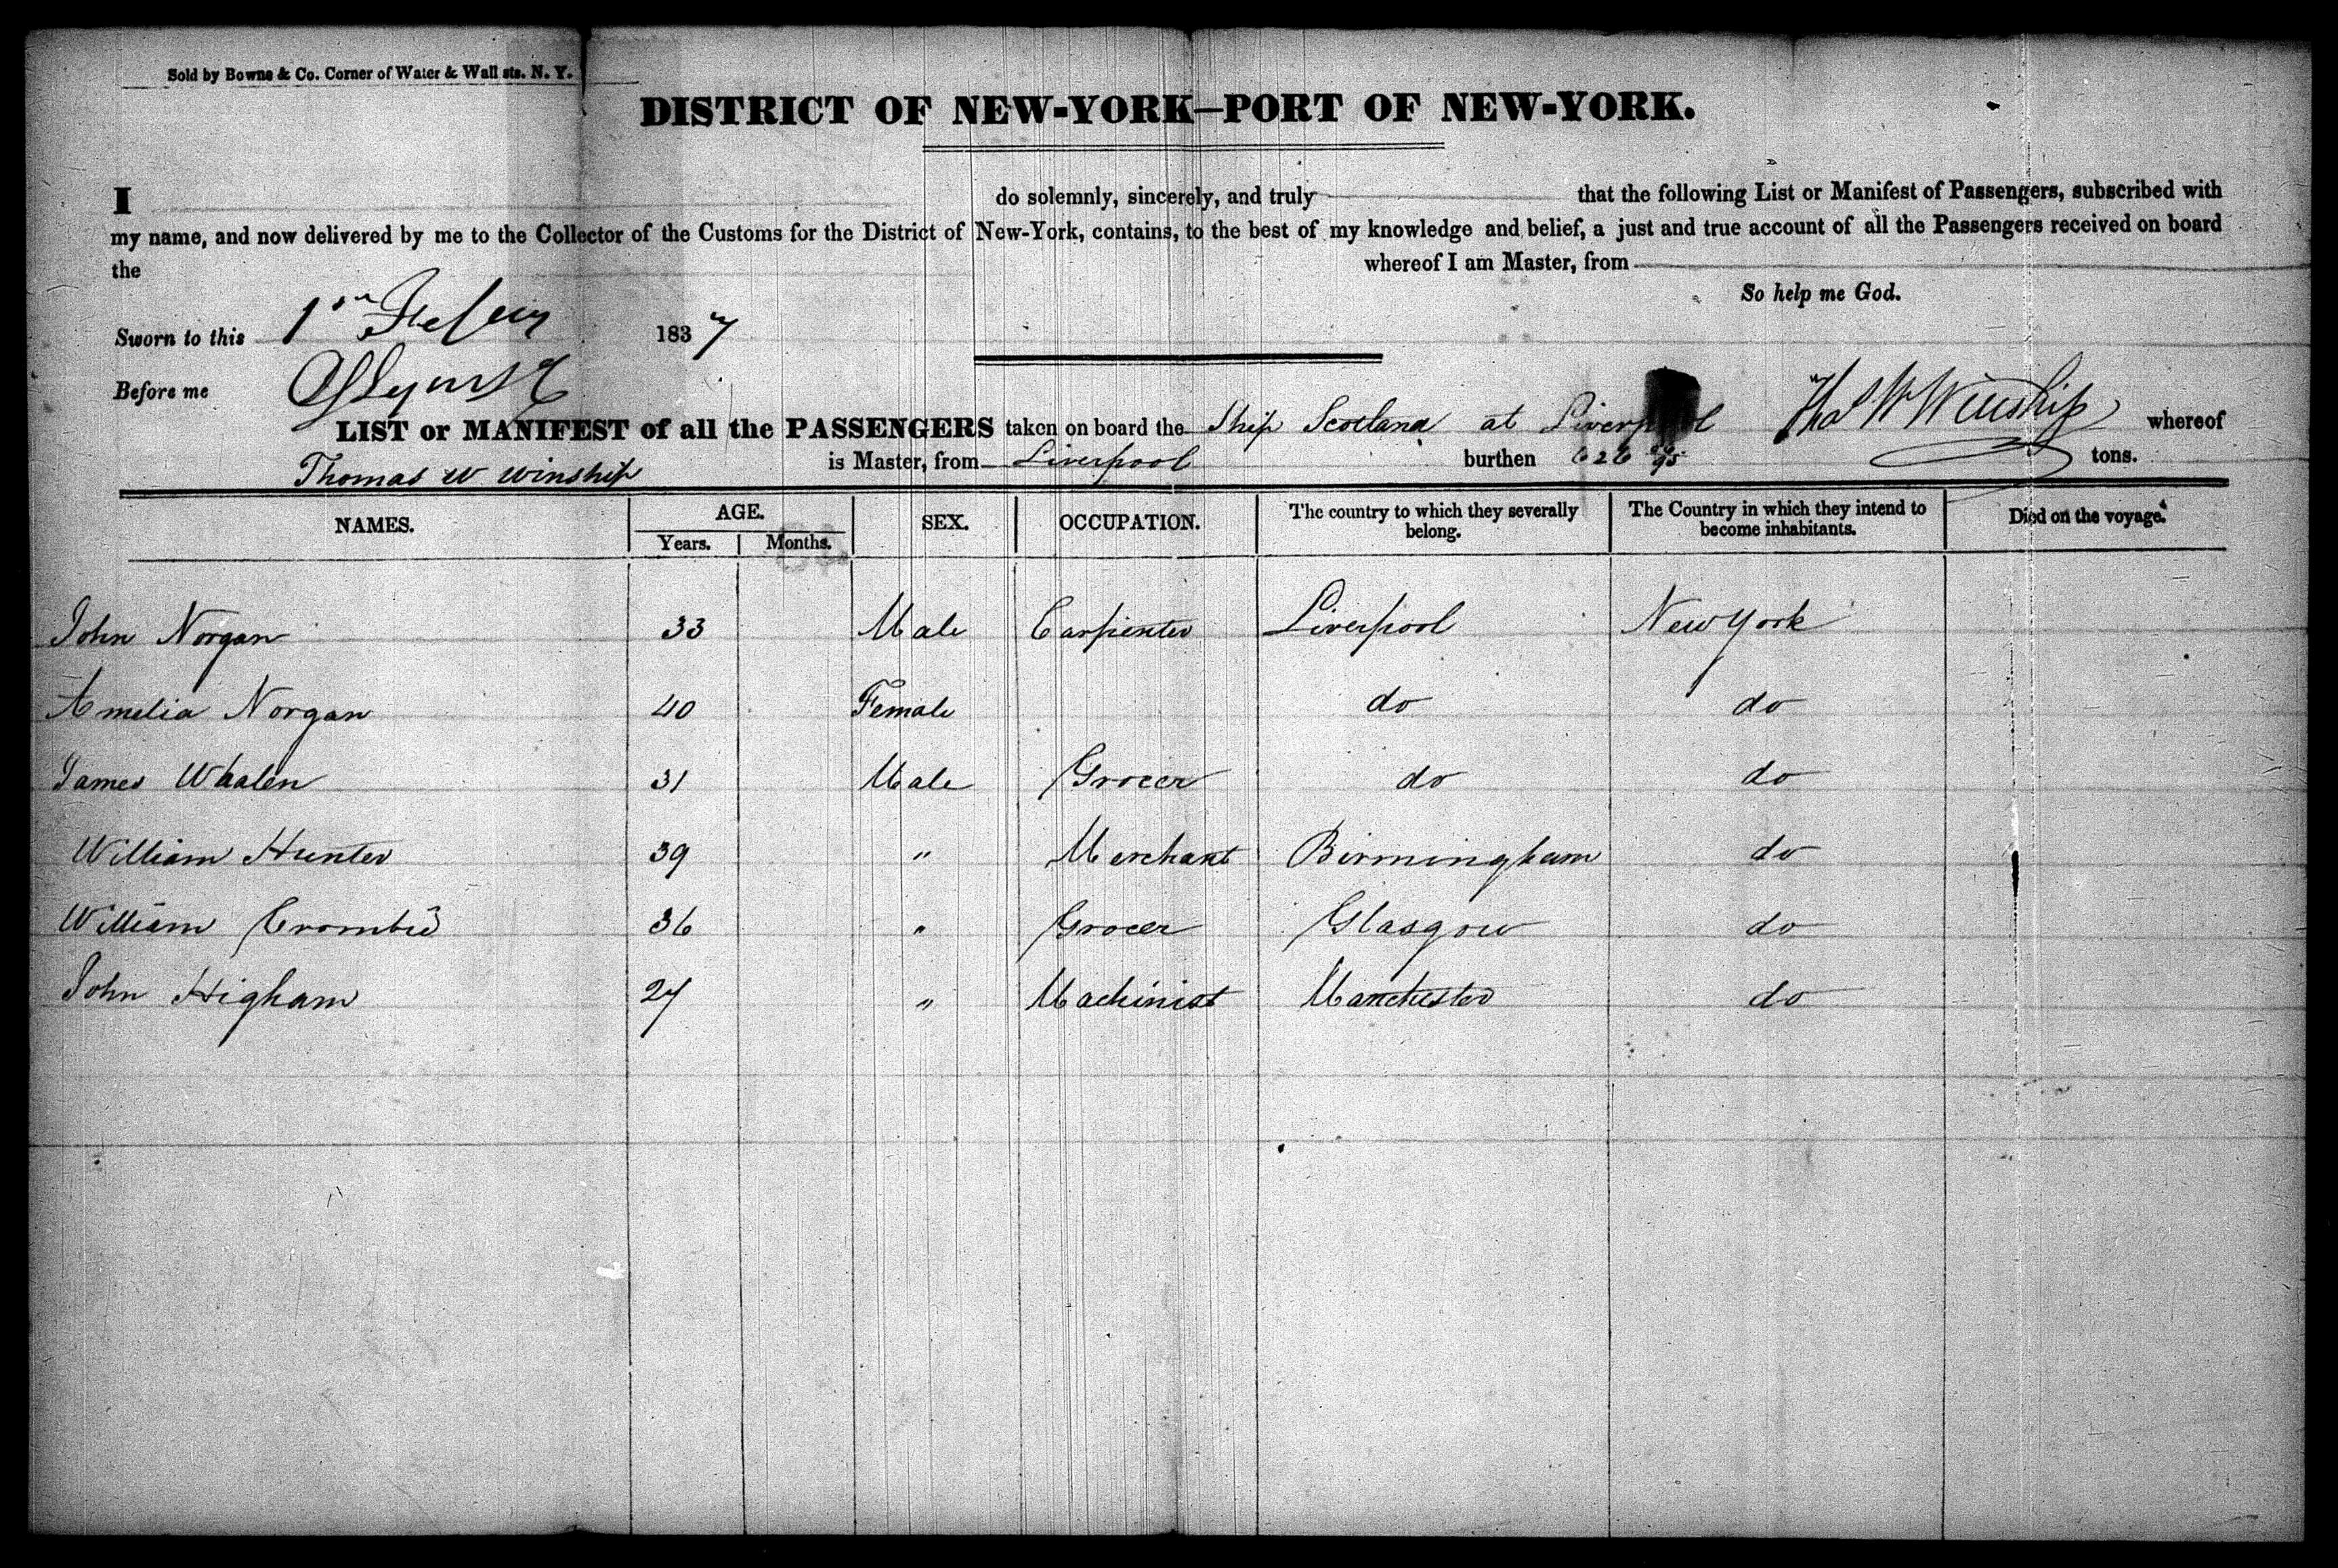 Sold by Bowne & Co. Corner of Water & Wall sts. N. Y.
DISTRICT OF NEW-YORK—PORT OF NEW-YORK.
I do solemnly, sincerely, and truly that the following List or Manifest of Passengers, subscribed with
my name, and now delivered by me to the Collector of the Customs for the District of New-York, contains, to the best of my knowledge and belief, a just and true account of all the Passengers received on board
the whereof I am Master, from
So help me God.
Sworn to this 1st 1837
Before me
Thos W Winship
LIST or MANIFEST of all the PASSENGERS taken on board the Ship Scotland at Liverpool whereof
Thomas W Winship is Master, from Liverpool burthen 626 tons.
NAMES. AGE. SEX. OCCUPATION. The country to which they severally belong. The Country in which they intend to become inhabitants. Died on the voyage.
Years. Months.
John Norgan 33 Male Carpenter Liverpool New York
Amelia Norgan 40 Female do do
James Whalen 31 Male Grocer do do
William Hunter 39 " Merchant Birmingham do
William Crombie 36 " Grocer Glasgow do
John Higham 27 " Machinist Manchester do